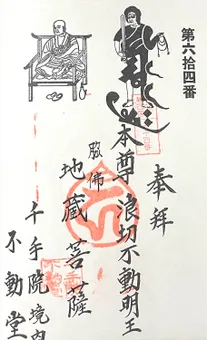 第六拾四番
奉拜
本尊浪切不動明王
脇佛
地蔵菩薩
千手院境内
不動堂